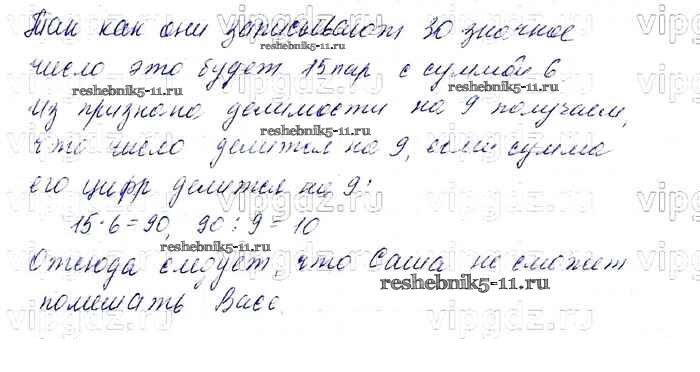 Так как они записывают 30 значное
число это будет 15 пар с суммой 6.
Из признака делимости на 9 получаем,
что число делится на 9, если сумма
его цифр делится на 9:
15·6=90, 90:9=10
Отсюда следует, что Саша не сможет
помешать Васе.
reshebnik5-11.ru
reshebnik5-11.ru
reshebnik5-11.ru
reshebnik5-11.ru
reshebnik5-11.ru
reshebnik5-11.ru
vipgdz.ru